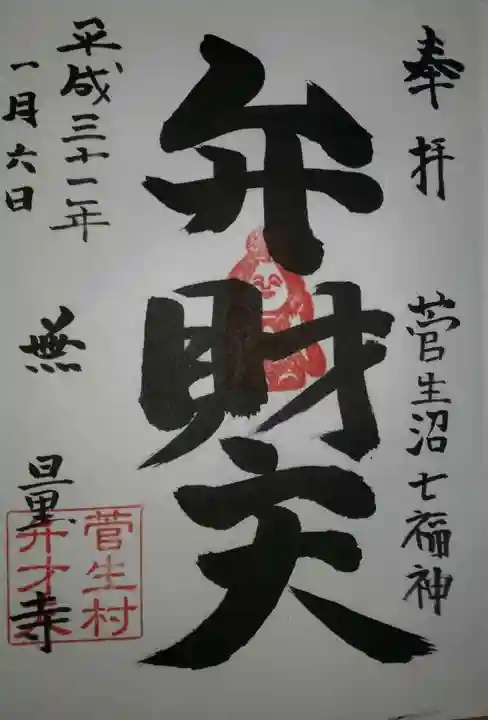 奉拝 菅生沼七福神
弁財天
平成三十一年
一月六日
無量寺
菅生村
弁才天